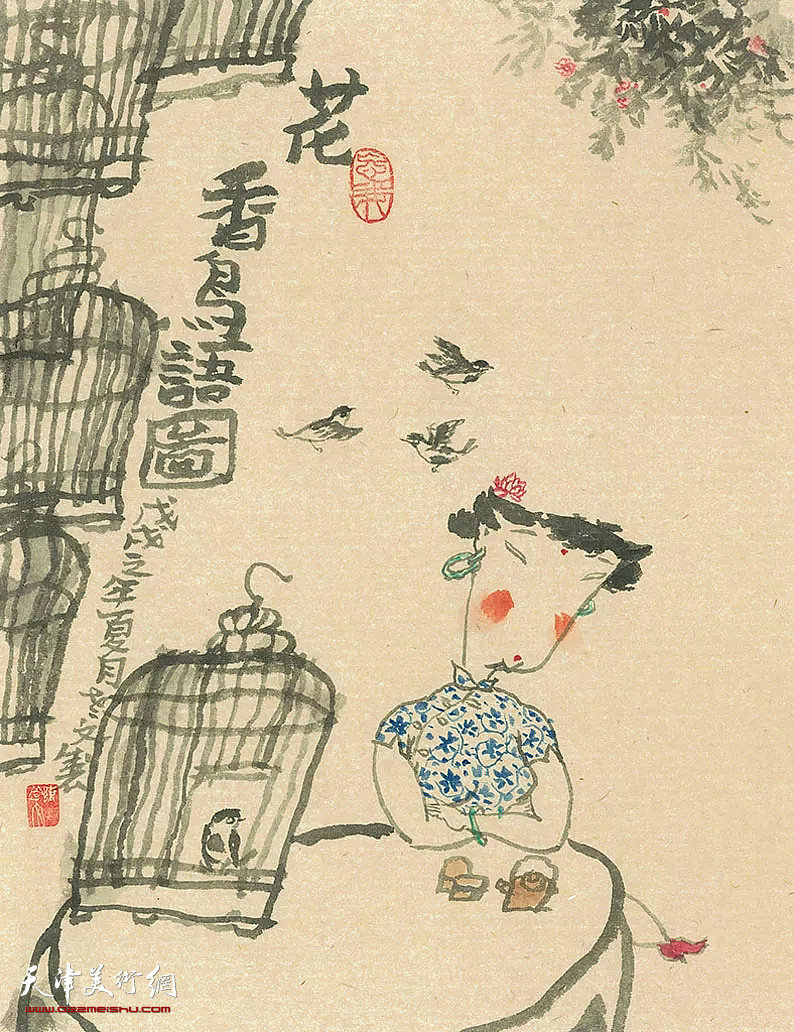 花
香鳥語圖
戊戌之年夏月
天津美術網
www.022meishu.com